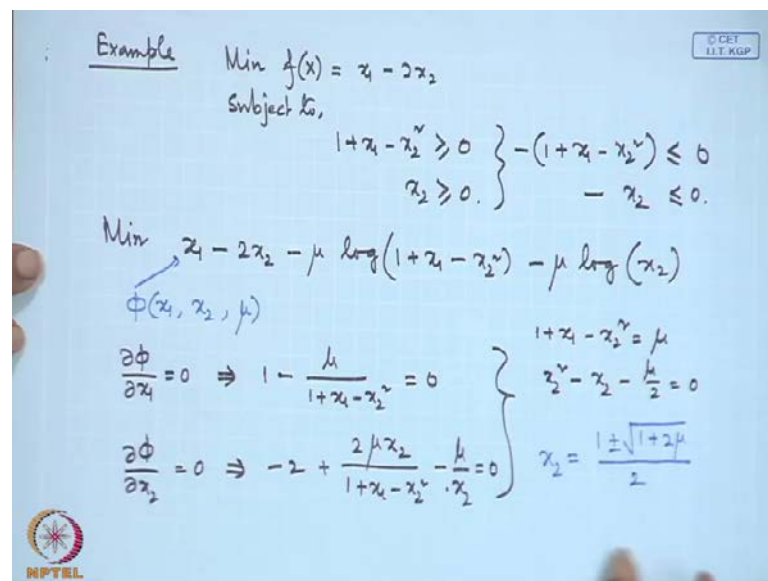 Example Min f(x) = x₁ - 2x₂
© CET
I.I.T. KGP
Subject to,
1 + x₁ - x₂² ≥ 0 } - (1 + x₁ - x₂²) ≤ 0
x₂ ≥ 0. - x₂ ≤ 0.
Min x₁ - 2x₂ - μ log(1 + x₁ - x₂²) - μ log(x₂)
Φ(x₁, x₂, μ)
∂Φ/∂x₁ = 0 ⇒ 1 - μ/(1 + x₁ - x₂²) = 0
∂Φ/∂x₂ = 0 ⇒ -2 + 2μx₂/(1 + x₁ - x₂²) - μ/x₂ = 0 }
1 + x₁ - x₂² = μ
x₂² - x₂ - μ/2 = 0
x₂ = (1 ± √(1 + 2μ))/2
NPTEL